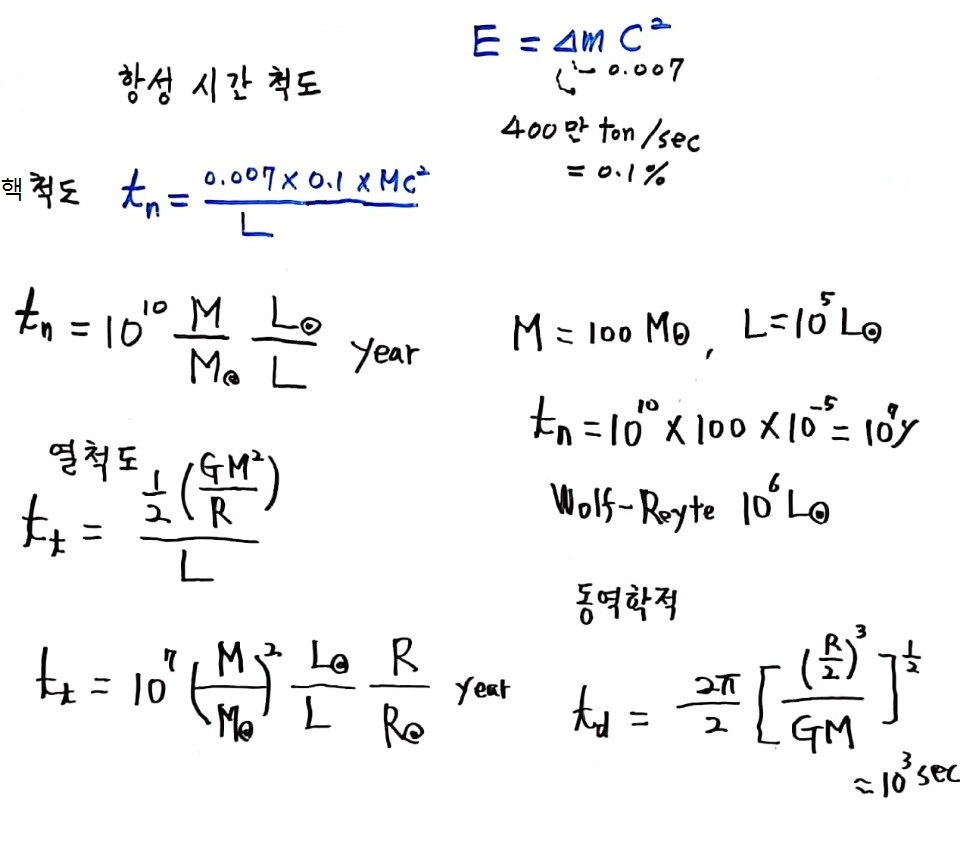 항성 시간 척도
E = Δm C²
0.007
400만 ton/sec
= 0.1%
핵 척도 tₙ = (0.007 × 0.1 × Mc²) / L
tₙ = 10¹⁰ (M / M⊙) (L⊙ / L) year
M = 100 M⊙, L = 10⁵ L⊙
tₙ = 10¹⁰ × 100 × 10⁻⁵ = 10⁷y
Wolf-Reyte 10⁶ L⊙
열척도
t_t = (1/2 (GM² / R)) / L
t_t = 10⁷ (M / M⊙)² (L⊙ / L) (R / R⊙) year
동역학적
t_d = (2π / 2) [(R/2)³ / GM]^(1/2)
≈ 10³ sec